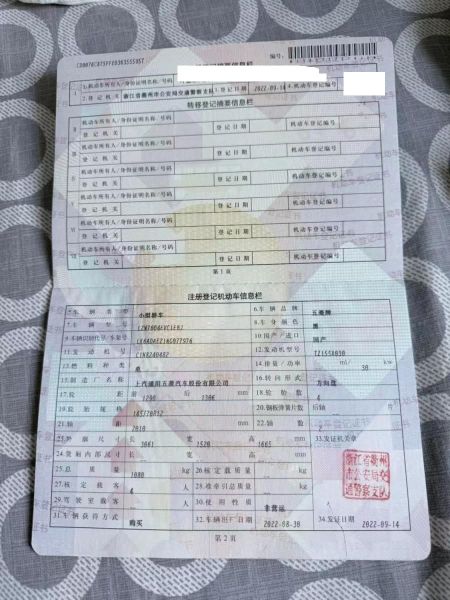 编号:
1.机动车所有人/身份证明名称/号码
2.登记机关 浙江省衢州市公安局交通警察支队 3.登记日期 2022-09-14 4.机动车登记编号
转移登记摘要信息栏
机动车所有人/身份证明名称/号码
登记机关 登记日期 机动车登记编号
机动车所有人/身份证明名称/号码
登记机关 登记日期 机动车登记编号
机动车所有人/身份证明名称/号码
登记机关 登记日期 机动车登记编号
机动车所有人/身份证明名称/号码
登记机关 登记日期 机动车登记编号
机动车所有人/身份证明名称/号码
登记机关 登记日期 机动车登记编号
第1页
注册登记机动车信息栏
5.车辆类型 小型轿车 6.车辆品牌 五菱牌
7.车辆型号 8.车身颜色 黑
9.车辆识别代号/车架号 LK6ADAE21NG077976 10.国产/进口 国产
11.发动机号 12.发动机型号 TZ155X030
13.燃料种类 电 14.排量/功率 ml/ 30 kw
15.制造厂名称 上汽通用五菱汽车股份有限公司 16.转向形式 方向盘
17.轮距 前1290 后1306 18.轮胎数 4
19.轮胎规格 145/70R12 20.钢板弹簧片数 后轴
21.轴距 2010 22.轴数 2
23.外廓尺寸 长 3061 宽 1520 高 1665 33.发证机关章
24.货厢内部尺寸 长 宽 高
25.总质量 1080 kg 26.核定载质量 kg
27.核定载客 4 人 28.准牵引总质量 kg
29.驾驶室载客 人 30.使用性质 非营运
31.车辆获得方式 购买 32.车辆出厂日期 2022-08-30 34.发证日期 2022-09-14
浙江省衢州
市公安局交
通警察支队
第2页